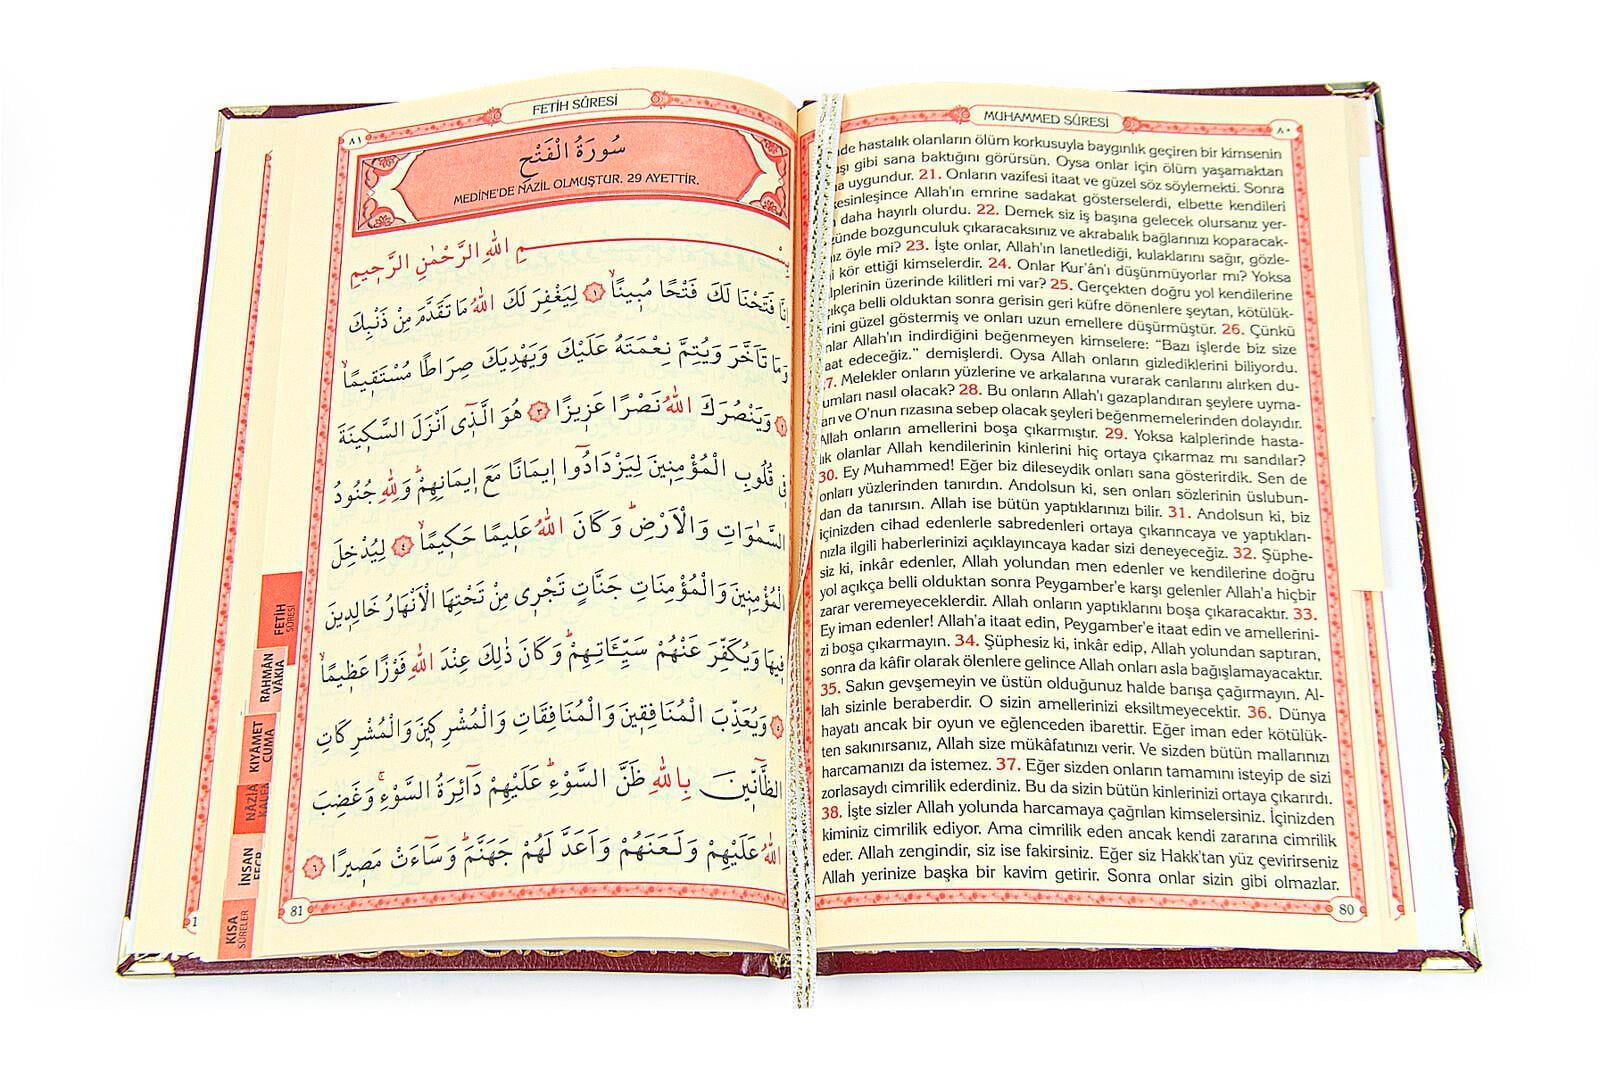 MUHAMMED SÛRESİ
٨٠
hastalık olanların ölüm korkusuyla baygınlık geçiren bir kimsenin
gibi sana baktığını görürsün. Oysa onlar için ölüm yaşamaktan
uygundur. 21. Onların vazifesi itaat ve güzel söz söylemekti. Sonra
kesinleşince Allah'ın emrine sadakat gösterselerdi, elbette kendileri
daha hayırlı olurdu. 22. Demek siz iş başına gelecek olursanız yer-
bozgunculuk çıkaracaksınız ve akrabalık bağlarınızı koparacak-
öyle mi? 23. İşte onlar, Allah'ın lanetlediği, kulaklarını sağır, gözle-
kör ettiği kimselerdir. 24. Onlar Kur'ân'ı düşünmüyorlar mı? Yoksa
kalplerinin üzerinde kilitleri mi var? 25. Gerçekten doğru yol kendilerine
açıkça belli olduktan sonra gerisin geri küfre dönenlere şeytan, kötülük-
lerini güzel göstermiş ve onları uzun emellere düşürmüştür. 26. Çünkü
onlar Allah'ın indirdiğini beğenmeyen kimselere: "Bazı işlerde biz size
itaat edeceğiz." demişlerdi. Oysa Allah onların gizlediklerini biliyordu.
27. Melekler onların yüzlerine ve arkalarına vurarak canlarını alırken du-
rumları nasıl olacak? 28. Bu onların Allah'ı gazaplandıran şeylere uyma-
ları ve O'nun rızasına sebep olacak şeyleri beğenmemelerinden dolayıdır.
Allah onların amellerini boşa çıkarmıştır. 29. Yoksa kalplerinde hasta-
lık olanlar Allah kendilerinin kinlerini hiç ortaya çıkarmaz mı sandılar?
30. Ey Muhammed! Eğer biz dileseydik onları sana gösterirdik. Sen de
onları yüzlerinden tanırdın. Andolsun ki, sen onları sözlerinin üslubun-
dan da tanırsın. Allah ise bütün yaptıklarınızı bilir. 31. Andolsun ki, biz
içinizden cihad edenlerle sabredenleri ortaya çıkarıncaya ve yaptıkları-
nızla ilgili haberlerinizi açıklayıncaya kadar sizi deneyeceğiz. 32. Şüphe-
siz ki, inkâr edenler, Allah yolundan men edenler ve kendilerine doğru
yol açıkça belli olduktan sonra Peygamber'e karşı gelenler Allah'a hiçbir
zarar veremeyeceklerdir. Allah onların yaptıklarını boşa çıkaracaktır. 33.
Ey iman edenler! Allah'a itaat edin, Peygamber'e itaat edin ve amellerini-
zi boşa çıkarmayın. 34. Şüphesiz ki, inkâr edip, Allah yolundan saptıran,
sonra da kâfir olarak ölenlere gelince Allah onları asla bağışlamayacaktır.
35. Sakın gevşemeyin ve üstün olduğunuz halde barışa çağırmayın. Al-
lah sizinle beraberdir. O sizin amellerinizi eksiltmeyecektir. 36. Dünya
hayatı ancak bir oyun ve eğlenceden ibarettir. Eğer iman eder kötülük-
ten sakınırsanız, Allah size mükâfatınızı verir. Ve sizden bütün mallarınızı
harcamanızı da istemez. 37. Eğer sizden onların tamamını isteyip de sizi
zorlasaydı cimrilik ederdiniz. Bu da sizin bütün kinlerinizi ortaya çıkarırdı.
38. İşte sizler Allah yolunda harcamaya çağrılan kimselersiniz. İçinizden
kiminiz cimrilik ediyor. Ama cimrilik eden ancak kendi zararına cimrilik
eder. Allah zengindir, siz ise fakirsiniz. Eğer siz Hakk'tan yüz çevirirseniz
Allah yerinize başka bir kavim getirir. Sonra onlar sizin gibi olmazlar.
80
FETİH SÛRESİ
٨١
سُورَةُ الْفَتْحِ
MEDİNE'DE NAZİL OLMUŞTUR. 29 AYETTİR.
بِسْمِ اللهِ الرَّحْمٰنِ الرَّحِيمِ
اِنَّا فَتَحْنَا لَكَ فَتْحًا مُبِينًاۙ ﴿١﴾ لِيَغْفِرَ لَكَ اللهُ مَا تَقَدَّمَ مِنْ ذَنْبِكَ
وَمَا تَاَخَّرَ وَيُتِمَّ نِعْمَتَهُ عَلَيْكَ وَيَهْدِيَكَ صِرَاطًا مُسْتَقِيمًاۙ
﴿٢﴾ وَيَنْصُرَكَ اللهُ نَصْرًا عَزِيزًا ﴿٣﴾ هُوَ الَّذِى اَنْزَلَ السَّكِينَةَ
فِى قُلُوبِ الْمُؤْمِنِينَ لِيَزْدَادُٓوا اِيمَانًا مَعَ اِيمَانِهِمْۜ وَلِلّٰهِ جُنُودُ
السَّمٰوَاتِ وَالْاَرْضِۜ وَكَانَ اللهُ عَلِيمًا حَكِيمًاۙ ﴿٤﴾ لِيُدْخِلَ
الْمُؤْمِنِينَ وَالْمُؤْمِنَاتِ جَنَّاتٍ تَجْرِى مِنْ تَحْتِهَا الْاَنْهَارُ خَالِدِينَ
فِيهَا وَيُكَفِّرَ عَنْهُمْ سَيِّـَٔاتِهِمْۜ وَكَانَ ذٰلِكَ عِنْدَ اللهِ فَوْزًا عَظِيمًاۙ
﴿٥﴾ وَيُعَذِّبَ الْمُنَافِقِينَ وَالْمُنَافِقَاتِ وَالْمُشْرِكِينَ وَالْمُشْرِكَاتِ
الظَّٓانِّينَ بِاللهِ ظَنَّ السَّوْءِۜ عَلَيْهِمْ دَٓائِرَةُ السَّوْءِۚ وَغَضِبَ
اللهُ عَلَيْهِمْ وَلَعَنَهُمْ وَاَعَدَّ لَهُمْ جَهَنَّمَۜ وَسَٓاءَتْ مَصِيرًا ﴿٦﴾
81
FETİH
SÛRESİ
RAHMÂN
VÂKIA
KIYÂMET
CUMA
İNSAN
KISA
SÛRELER
1